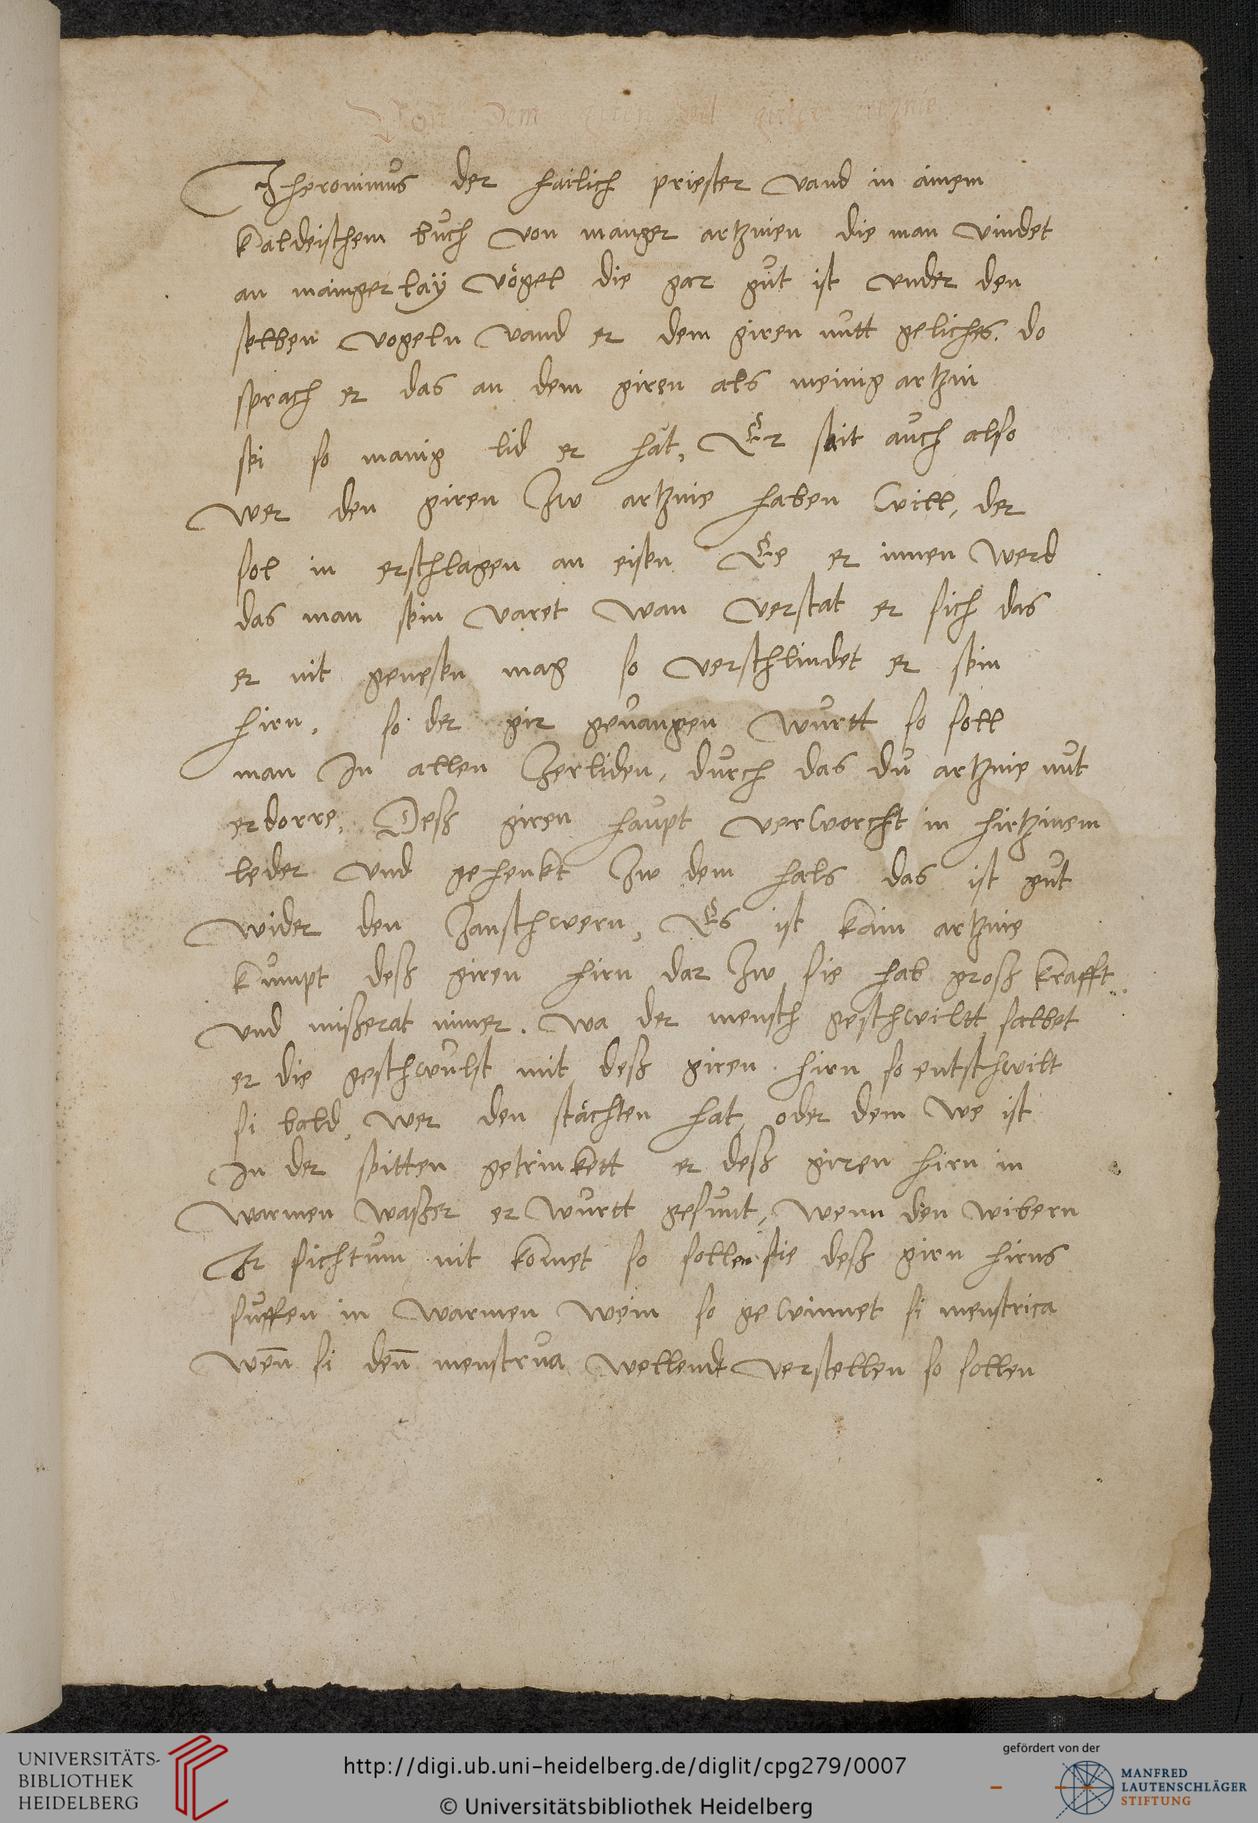 Von dem giren vil guter artznie
Iheronimus der hailich priester vand in ainem
kaldeischem buͦch von manger artznien die man vindet
an maingerlaÿ vögel die gar guͦt ist vnder den
selben vogeln vand er dem giren nutt geliches. do
sprach er das an dem giren als meinig artzni
sei so manig lid er hat, Er seit auch also
wer den giren zw artznie haben will, der
sol in erschlagen an eisen Ee er innen werd
das man sein varet wan verstat er sich das
er nit genesen mag so verschlindet er sein
hirn, so der gir gevangen wurtt so soll
man In allen zerliden, durch das du artznie nut
erdorre, Deß giren haupt verworcht in hirtzinem
leder vnd gehenkt zw dem hals das ist guͦt
wider den zanschwern, Es ist kain artznie
kumpt deß giren hirn dar zw sie hab groß krafft
vnd mißerat nimer. wa der mensch geschwiltt salbet
er die geschwulst mit deß giren hirn so entschwilt
si bald, wer den stächten hat, oder dem we ist
In der seitten getrinkett er deß giren hirn in
warmen waßer er wurtt gesunt, wenn den wibern
Ir sichtum nit komet so sollen sie deß girn hirns
suffen in warmen wein so gewinnet si menstrica
wen̄ si den̄ menstrua wellendt verstellen so sollen
UNIVERSITÄTS-
BIBLIOTHEK
HEIDELBERG
http://digi.ub.uni-heidelberg.de/diglit/cpg279/0007
© Universitätsbibliothek Heidelberg
gefördert von der
MANFRED
LAUTENSCHLÄGER
STIFTUNG